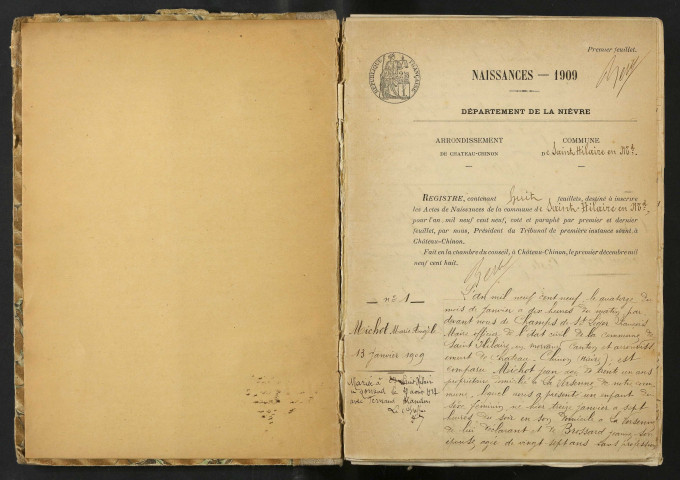 Premier feuillet.
RÉPUBLIQUE FRANÇAISE
NAISSANCES — 1909
DÉPARTEMENT DE LA NIÈVRE
ARRONDISSEMENT
DE CHATEAU-CHINON
COMMUNE
DE Saint Hilaire en Mn
REGISTRE, contenant huit feuillets, destiné à inscrire
les Actes de Naissances de la commune de Saint-Hilaire en Mn,
pour l'an mil neuf cent neuf, coté et paraphé par premier et dernier
feuillet, par nous, Président du Tribunal de première instance séant à
Château-Chinon.
Fait en la chambre du conseil, à Château-Chinon, le premier décembre mil
neuf cent huit.
n° 1
Michot Marie
13 janvier 1909
Mariée à
le août
avec Fernand
L'an mil neuf cent neuf le quatorze du
mois de janvier à dix heures du matin par
devant nous de Champs de St Léger François
Maire officier de l'état civil de la commune de
Saint Hilaire en morvan canton et arrondiss
ement de Château-Chinon (Nièvre), est
comparu Michot jean âgé de trente un ans
propriétaire domicilié à la de notre com
mune, lequel nous a présenté un enfant du
sexe féminin né hier treize janvier à sept
heures du soir en son domicile à la
de lui déclarant et de Brossard jeanne son
épouse, agée de vingt sept ans sans profession